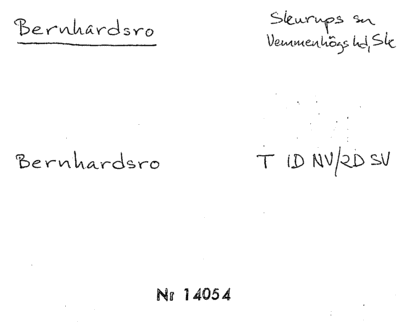 Bernhardsro
Skurups sn
Vemmenhögs hd, Sk
Bernhardsro
T 1D NV/2D SV
Nr 14054